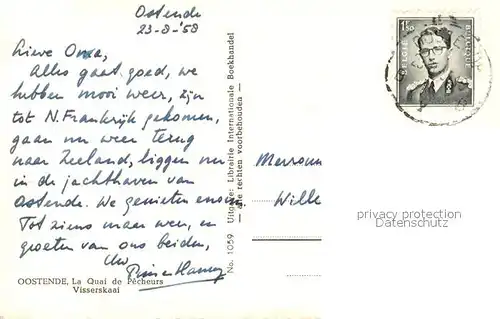 Oostende
23-8-'58
Lieve Oma,
Alles gaat goed, we
hebben mooi weer, zijn
tot N. Frankrijk gekomen,
gaan nu weer terug
naar Zeeland, liggen nu
in de jachthaven van
Oostende. We genieten enorm.
Tot ziens maar weer, en
groeten van ons beiden,
Uw
OOSTENDE, La Quai de Pêcheurs
Visserskaai
No. 1059 Uitgave: Librairie Internationale Boekhandel
— alle rechten voorbehouden —
Mevrouw
Wille
1F50
BELGIE
BELGIQUE
privacy protection
Datenschutz